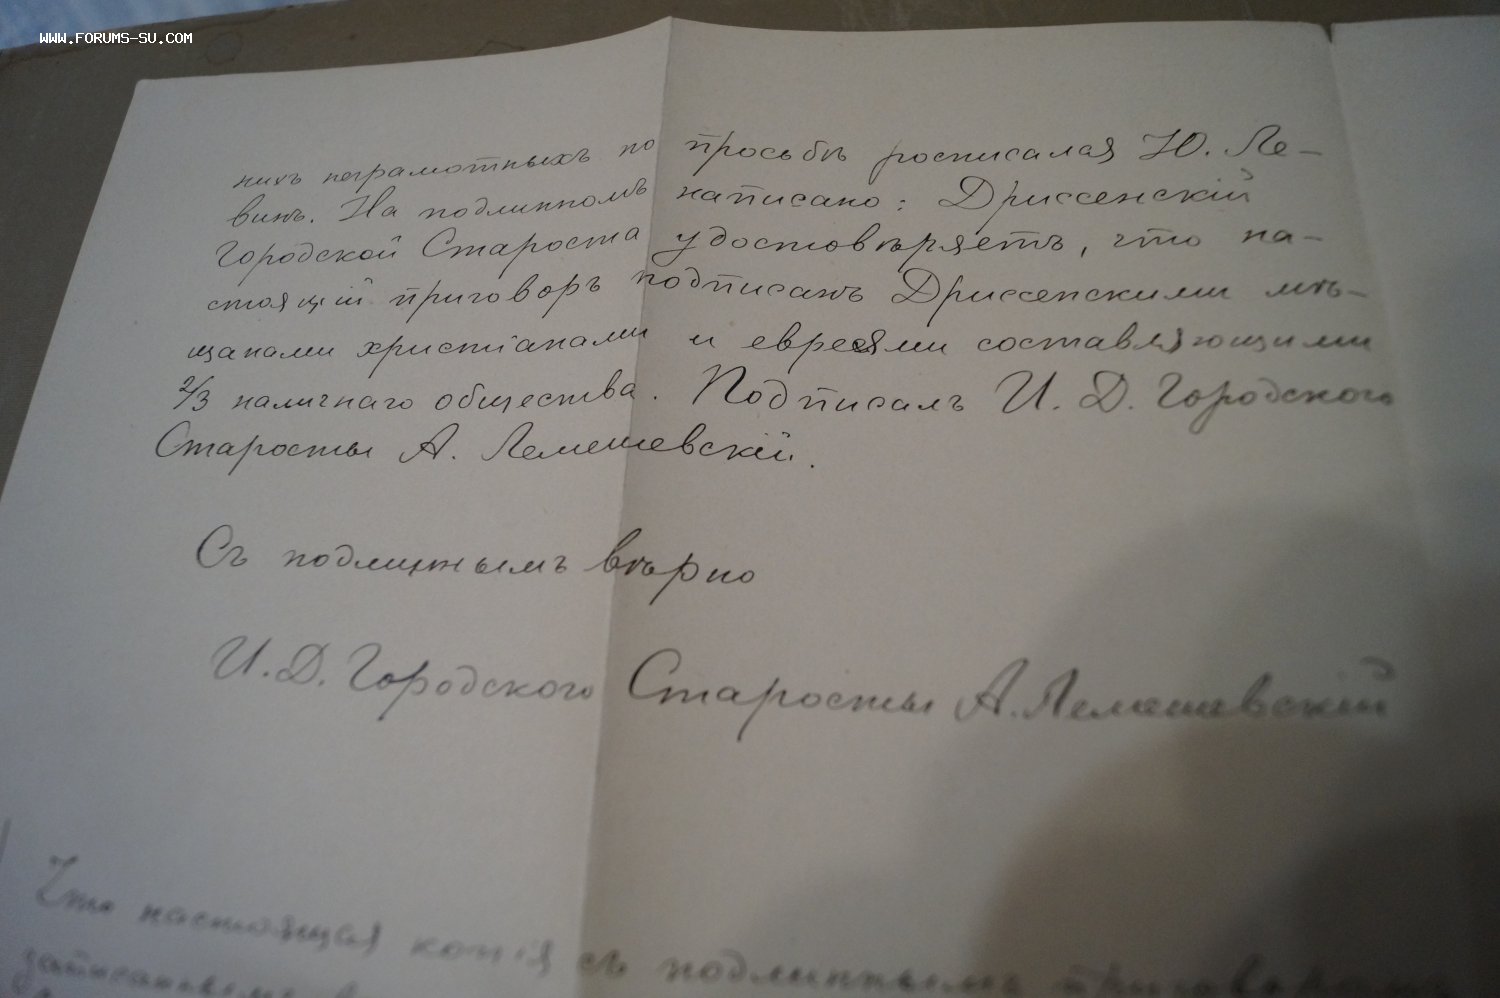 WWW.FORUMS-SU.COM
нихъ неграмотныхъ по просьбѣ росписался Ю. Ле-
винъ. На подлинномъ написано: Дриссенскій
Городской Староста удостовѣряетъ, что на-
стоящій приговоръ подписанъ Дриссенскими мѣ-
щанами христіанами и евреями составляющими
2/3 наличнаго общества. Подписалъ И. Д. Городского
Старосты А. Лемешевскій.
Съ подлиннымъ вѣрно
И. Д. Городского Старосты А. Лемешевскій
Что настоящая копія съ подлиннымъ приговоромъ
записаннымъ в